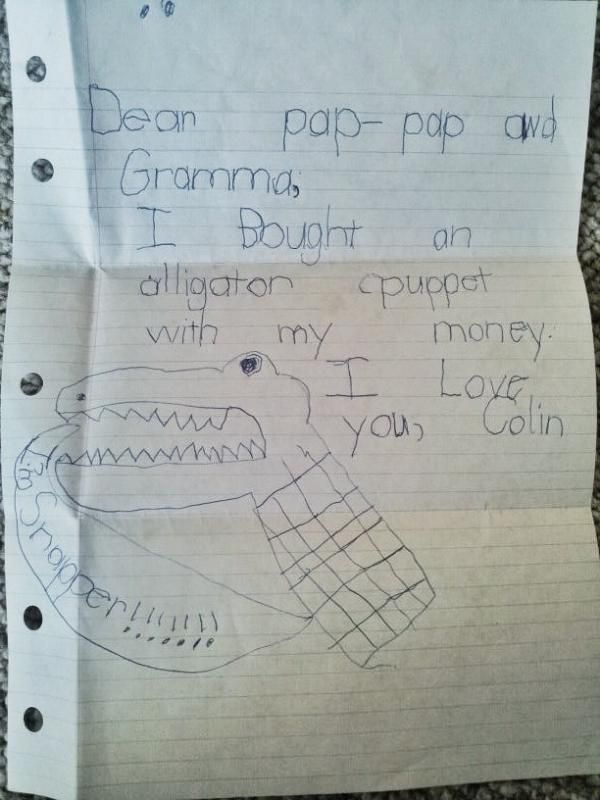 Dear pap-pap and
Gramma,
I Bought an
alligator puppet
with my money.
I Love
you, Colin
I'm Snapper!!!!!!!!